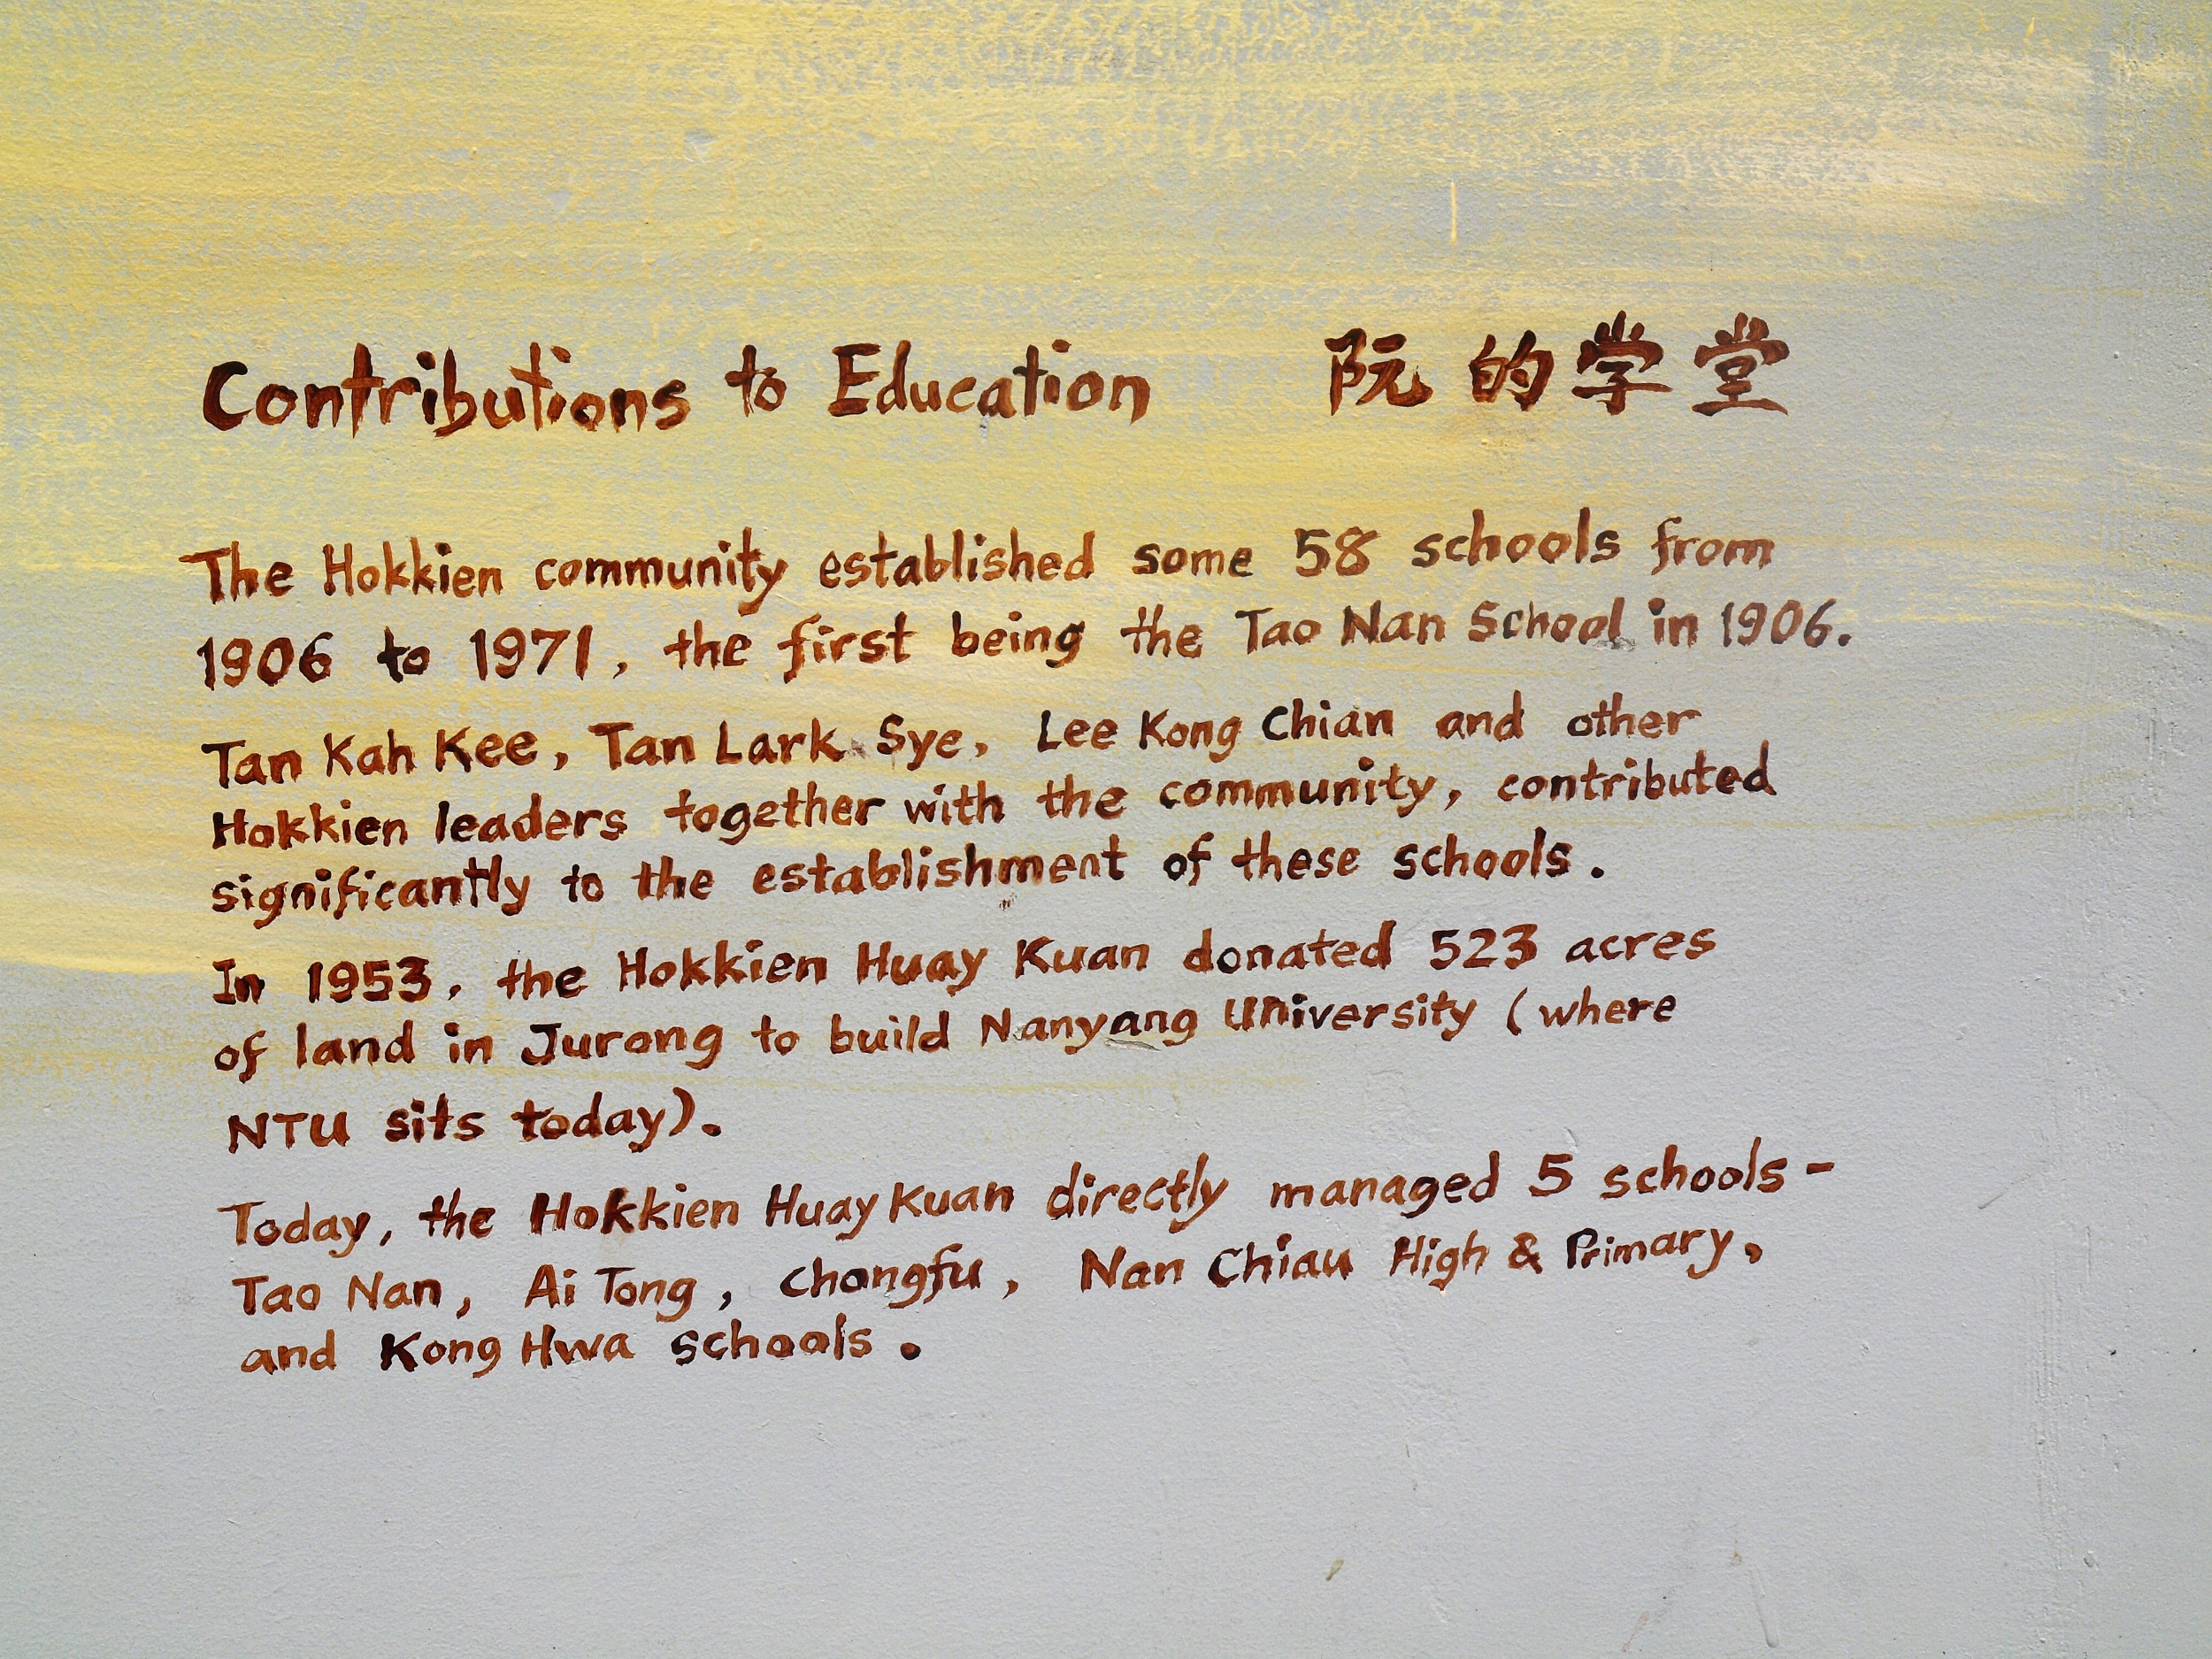 Contributions to Education 阮的学堂
The Hokkien community established some 58 schools from
1906 to 1971, the first being the Tao Nan School in 1906.
Tan Kah Kee, Tan Lark Sye, Lee Kong Chian and other
Hokkien leaders together with the community, contributed
significantly to the establishment of these schools.
In 1953, the Hokkien Huay Kuan donated 523 acres
of land in Jurong to build Nanyang University (where
NTU sits today).
Today, the Hokkien Huay Kuan directly managed 5 schools-
Tao Nan, Ai Tong, Chongfu, Nan Chiau High & Primary,
and Kong Hwa schools.